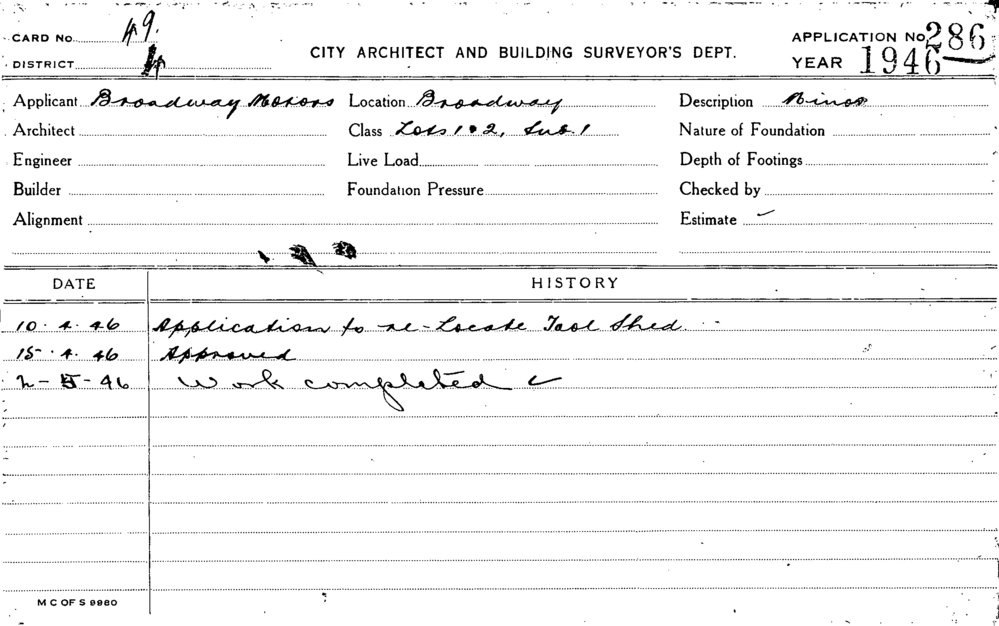 CARD No. 49.
APPLICATION No. 286
DISTRICT 4
CITY ARCHITECT AND BUILDING SURVEYOR'S DEPT.
YEAR 1946
Applicant Broadway Motors Location Broadway Description Minor
Architect Class Lots 1 & 2, Sub. 1 Nature of Foundation
Engineer Live Load Depth of Footings
Builder Foundation Pressure Checked by
Alignment Estimate
DATE HISTORY
10.4.46 Application to re-locate Tool Shed.
15.4.46 Approved
2-5-46 Work completed
M C OF S 9980